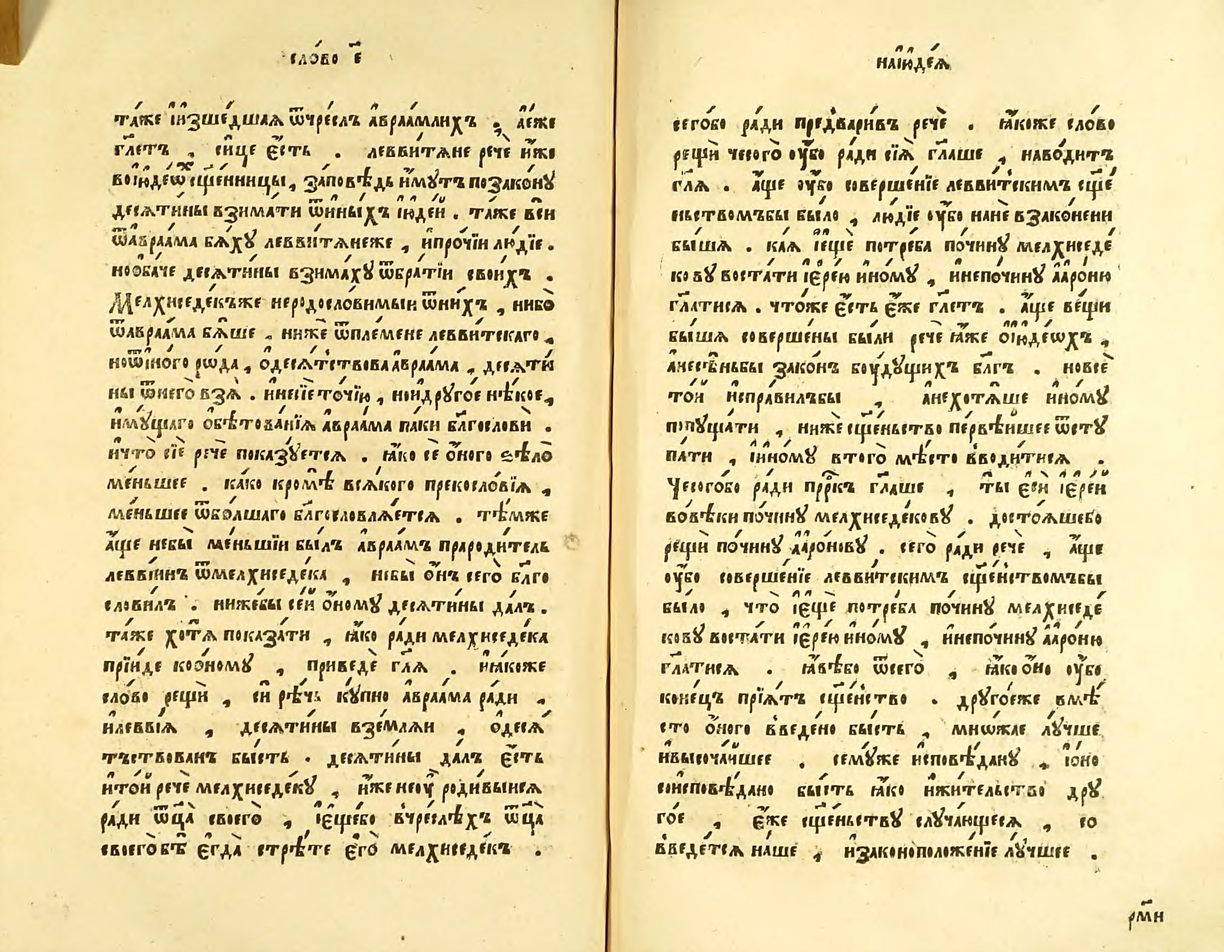 сло́во є҃
та́же и҆изше́дшаѧ ѿчре́слъ а҆враа́млихъ , а҆е́же
гл҃етъ , си́це є҆́сть . леввитѧне речѐ и҆́же
воі҆ꙋде́ѡⷯ сщ҃е́нницы , за́повѣдь и҆́мꙋтъ позако́нꙋ
десѧти́ны взима́ти ѿи҆ны́хъ і҆ꙋде́й . та́же всѝ
ѿа҆враа́ма бѧ́хꙋ леввитѧнеже , и҆про́чїи лю́дїе .
но ѻ҆ба́че десѧти́ны взима́хꙋ ѿбра́тїи свои́хъ .
Мелхиседе́къже неродосло́вимыи ѿни́хъ , ни́бо
ѿа҆враа́ма бѧ́ше , ни́же ѿпле́мене левви́тскаго ,
ноѿи҆но́го рѡ́да , ѻ҆десѧ́тствова а҆враа́ма , десѧти́
ны ѿнего̀ взѧ̀ . и҆несїѐ то́чїю , нои҆дрꙋго́е нѣ́кое ,
и҆мꙋ́щаго обѣтова́нїѧ а҆враа́ма па́ки блг҃ослови̏ .
и҆что̀ сїѐ речѐ пока́зꙋетсѧ . ꙗ҆́ко се ѻ҆́ного ѕѣло̀
ме́ньшее . ка́ко кромѣ̀ всѧ́кого прекосло́вїѧ ,
ме́ньшее ѿбо́лшаго блг҃ословлѧ́етсѧ . тѣ́мже
а҆́ще небы̀ ме́ньшїи бы́лъ а҆враа́мъ прароди́тель
левви́инъ ѿмелхиседе́ка , небы̀ ѻ҆́нъ сего̀ блг҃о
слови́лъ . ниже́бы се́й ѻ҆́номꙋ десѧти́ны да́лъ .
та́же хотѧ̀ показа́ти , ꙗ҆́ко ра́ди мелхиседе́ка
прїи́де коѻ҆́номꙋ , приведѐ гл҃ѧ . и҆ꙗ҆́коже
сло́во рещѝ , сѝ рѣ́чь кꙋ́пно а҆враа́ма ра́ди ,
и҆левви́ѧ , десѧти́ны взе́млѧи , ѻ҆десѧ́
тъствованъ бы́сть . десѧти́ны да́лъ є҆́сть
и҆то́й речѐ мелхиседе́кꙋ , и҆́же неоу҆̀ роди́выисѧ
ра́ди ѻ҆ц҃а̀ своего̀ , і҆є҆ще́бо вчре́слѣхъ ѻ҆ц҃а̀
своего̀ бѣ̀ є҆гда̀ стрѣ́те є҆го̀ мелхиседе́къ .
наі҆ꙋде́ѧ
сего́бо ра́ди предвари́въ речѐ . ꙗ҆́коже сло́во
рещѝ чесого̀ оу҆́бо ра́ди сїѧ̀ гл҃аше , наво́дитъ
гл҃ѧ . а҆́ще оу҆́бо соверше́нїе левви́тскимъ сщ҃е́
ньствомъбы бы́ло , лю́дїе оу҆́бо нане́ взако́нени
бы́шѧ . ка́ѧ і҆є҆щѐ потре́ба почи́нꙋ мелхиседе́
ковꙋ воста́ти і҆є҆ре́ю и҆но́мꙋ , и҆непочи́нꙋ а҆аро́ню
гл҃атисѧ . что́же є҆́сть є҆́же гл҃етъ . а҆́ще ве́щи
бы́шѧ соверше́ны бы́ли речѐ ꙗ҆́же оі҆ꙋде́ѡхъ ,
а҆несѣ́ньбы зако́нъ бꙋ́дꙋщихъ бл҃гъ . новсѐ
то́й и҆спра́вилъбы , а҆нехотѧ́ше и҆но́мꙋ
пꙋща́ти , ни́же сщ҃е́ньство пе́рвѣишее ѿстꙋ
па́ти , и҆и҆но́мꙋ втого̀ мѣ́сто вводи́тисѧ .
Чесого́бо ра́ди прⷪ҇ро́къ гл҃аше , ты̀ є҆сѝ і҆є҆ре́й
вовѣ́ки почи́нꙋ мелхиседе́ковꙋ . досто́ѧшебо
рещѝ почи́нꙋ а҆аро́новꙋ . сего̀ ра́ди речѐ , а҆́ще
оу҆́бо соверше́нїе левви́тскимъ сщ҃е́нствомъбы
бы́ло , что̀ і҆є҆щѐ потре́ба почи́нꙋ мелхиседе́
ковꙋ воста́ти і҆є҆ре́ю и҆но́мꙋ , и҆непочи́нꙋ а҆аро́ню
гл҃атисѧ . ꙗ҆́вѣбо ѿсего̀ , ꙗ҆́ко ѻ҆́но оу҆́бо
коне́цъ прїѧ́тъ сщ҃е́нство . дрꙋго́еже вмѣ́
сто ѻ҆́ного введено̀ бы́сть , мнѡ́жае лꙋ́чше
и҆высоча́йшее . семꙋ́же и҆сповѣ́данꙋ , і҆ѻ҆но̀
соисповѣ́дано бы́сть ꙗ҆́ко и҆жи́тельство дрꙋ
го́е , є҆́же сщ҃е́ньствꙋ слꙋча́ющеесѧ , со
введе́тсѧ на́ше , и҆законоположе́нїе лꙋ́чшее .
рм҃и